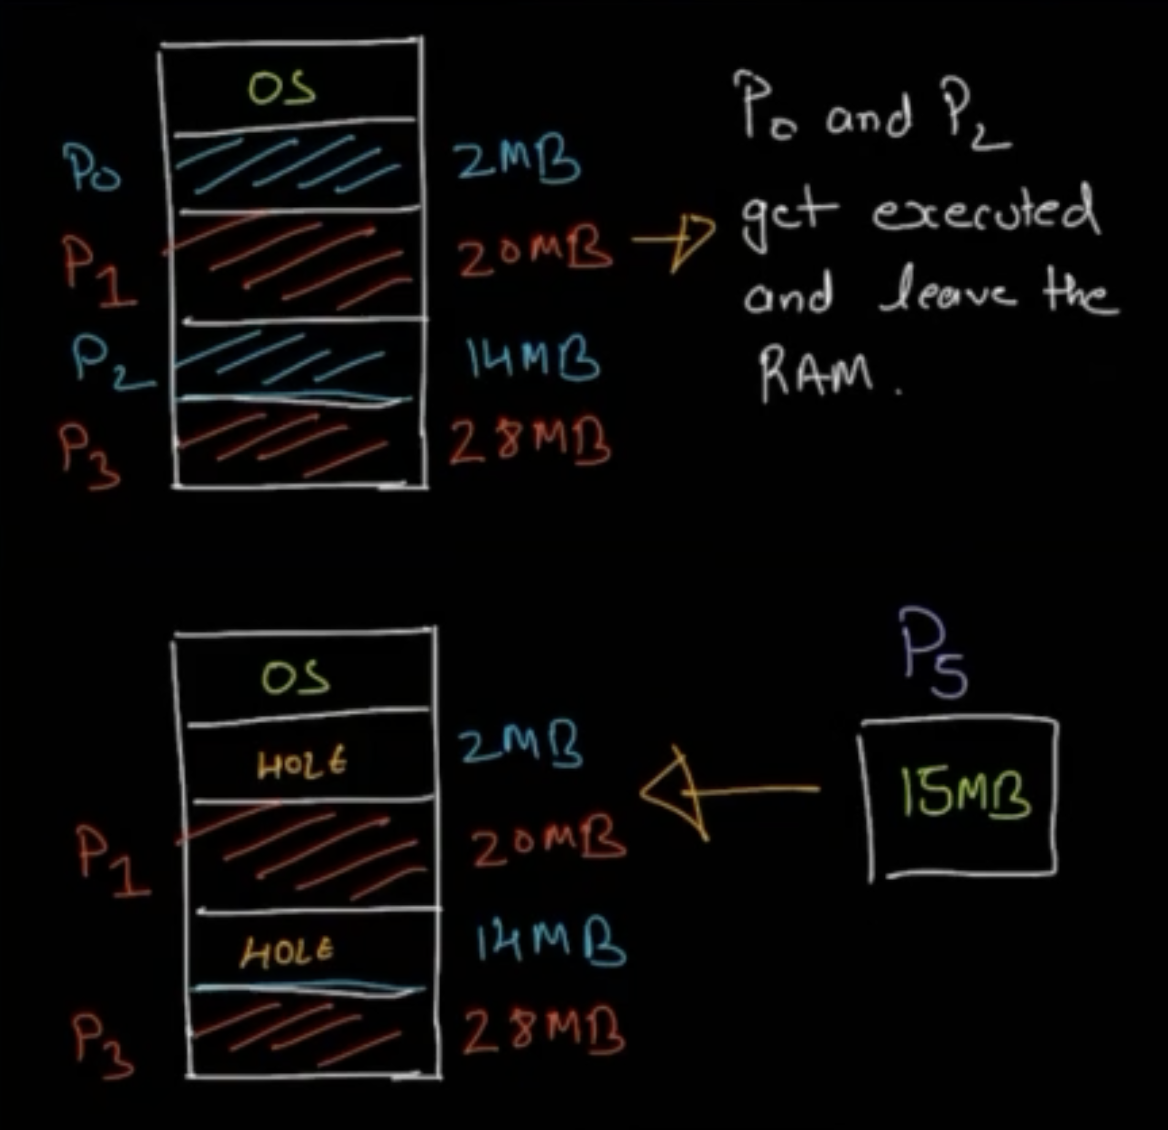 OS
P0 2MB
P1 20MB
P2 14MB
P3 28MB
P0 and P2
get executed
and leave the
RAM.
OS
HOLE 2MB
P1 20MB
HOLE 14MB
P3 28MB
P5
15MB